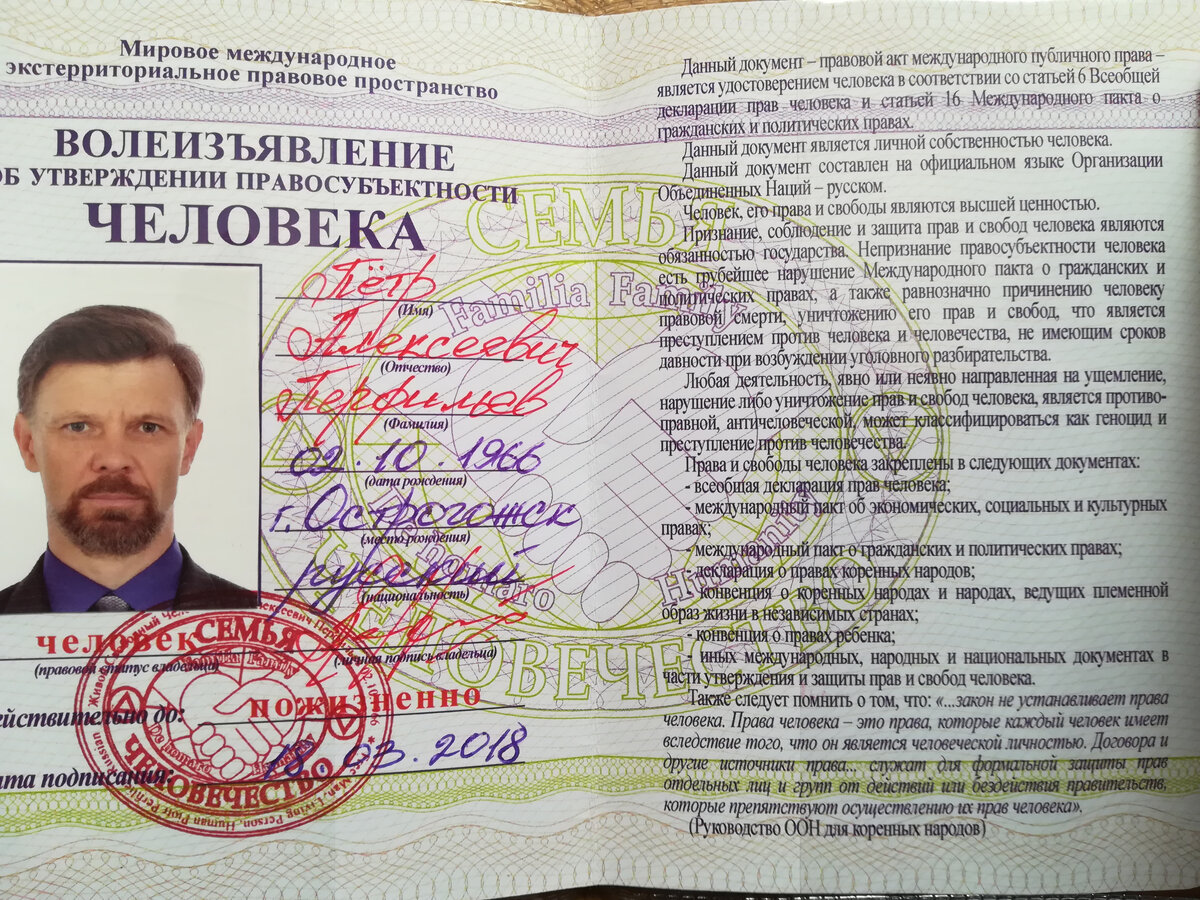 Мировое международное
экстерриториальное правовое пространство
ВОЛЕИЗЪЯВЛЕНИЕ
ОБ УТВЕРЖДЕНИИ ПРАВОСУБЪЕКТНОСТИ
ЧЕЛОВЕКА
Пётр
(Имя)
Алексеевич
(Отчество)
Перфильев
(Фамилия)
02.10.1966
(дата рождения)
г. Острогожск
(место рождения)
русский
(национальность)
человек
(правовой статус владельца)
(личная подпись владельца)
действительно до: пожизненно
дата подписания: 18.03.2018
СЕМЬЯ
Familia Family
Humanity
СЕМЬЯ
Familia Family
ЧЕЛОВЕЧЕСТВО
Данный документ – правовой акт международного публичного права –
является удостоверением человека в соответствии со статьей 6 Всеобщей
декларации прав человека и статьей 16 Международного пакта о
гражданских и политических правах.
Данный документ является личной собственностью человека.
Данный документ составлен на официальном языке Организации
Объединенных Наций – русском.
Человек, его права и свободы являются высшей ценностью.
Признание, соблюдение и защита прав и свобод человека являются
обязанностью государства. Непризнание правосубъектности человека
есть грубейшее нарушение Международного пакта о гражданских и
политических правах, а также равнозначно причинению человеку
правовой смерти, уничтожению его прав и свобод, что является
преступлением против человека и человечества, не имеющим сроков
давности при возбуждении уголовного разбирательства.
Любая деятельность, явно или неявно направленная на ущемление,
нарушение либо уничтожение прав и свобод человека, является противо-
правной, античеловеческой, может классифицироваться как геноцид и
преступление против человечества.
Права и свободы человека закреплены в следующих документах:
- всеобщая декларация прав человека;
- международный пакт об экономических, социальных и культурных
правах;
- международный пакт о гражданских и политических правах;
- декларация о правах коренных народов;
- конвенция о коренных народах и народах, ведущих племенной
образ жизни в независимых странах;
- конвенция о правах ребенка;
- иных международных, народных и национальных документах в
части утверждения и защиты прав и свобод человека.
Также следует помнить о том, что: «...закон не устанавливает права
человека. Права человека – это права, которые каждый человек имеет
вследствие того, что он является человеческой личностью. Договора и
другие источники права... служат для формальной защиты прав
отдельных лиц и групп от действий или бездействия правительств,
которые препятствуют осуществлению их прав человека».
(Руководство ООН для коренных народов)